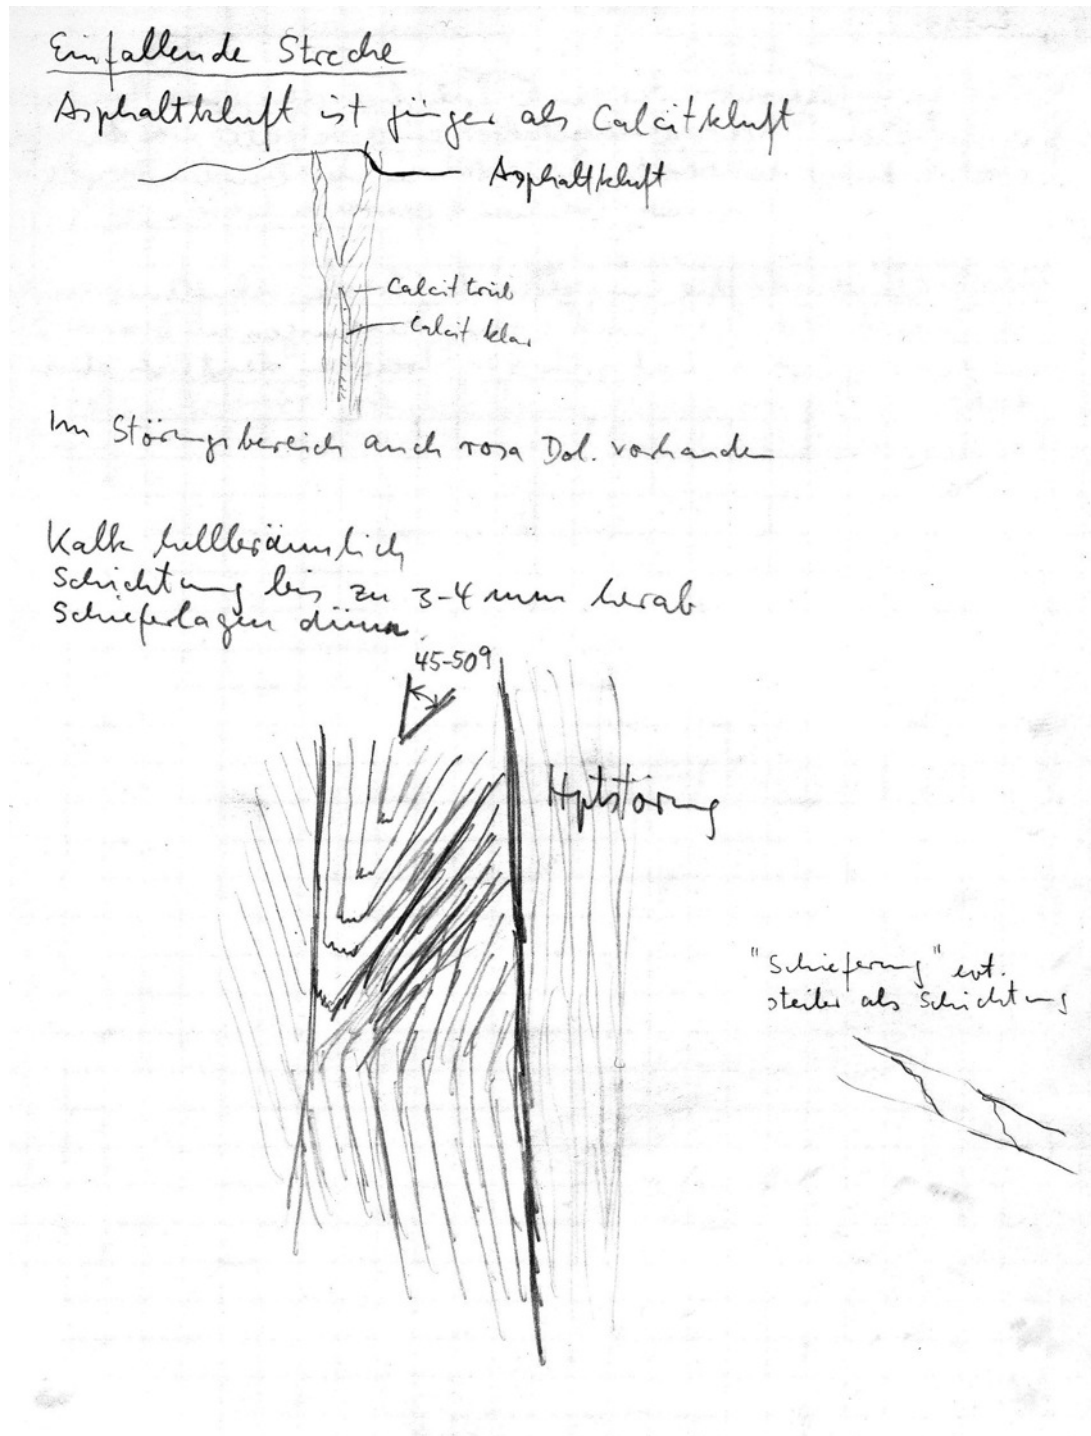 Einfallende Strecke
Asphaltkluft ist jünger als Calcitkluft
Asphaltkluft
Calcit trüb
Calcit klar
Im Störungsbereich auch rosa Dol. vorhanden
Kalk hellbräunlich
Schichtung bis zu 3-4 mm herab
Schieferlagen dünn
45-50g
Hptstörung
"Schieferung" evt.
steiler als Schichtung